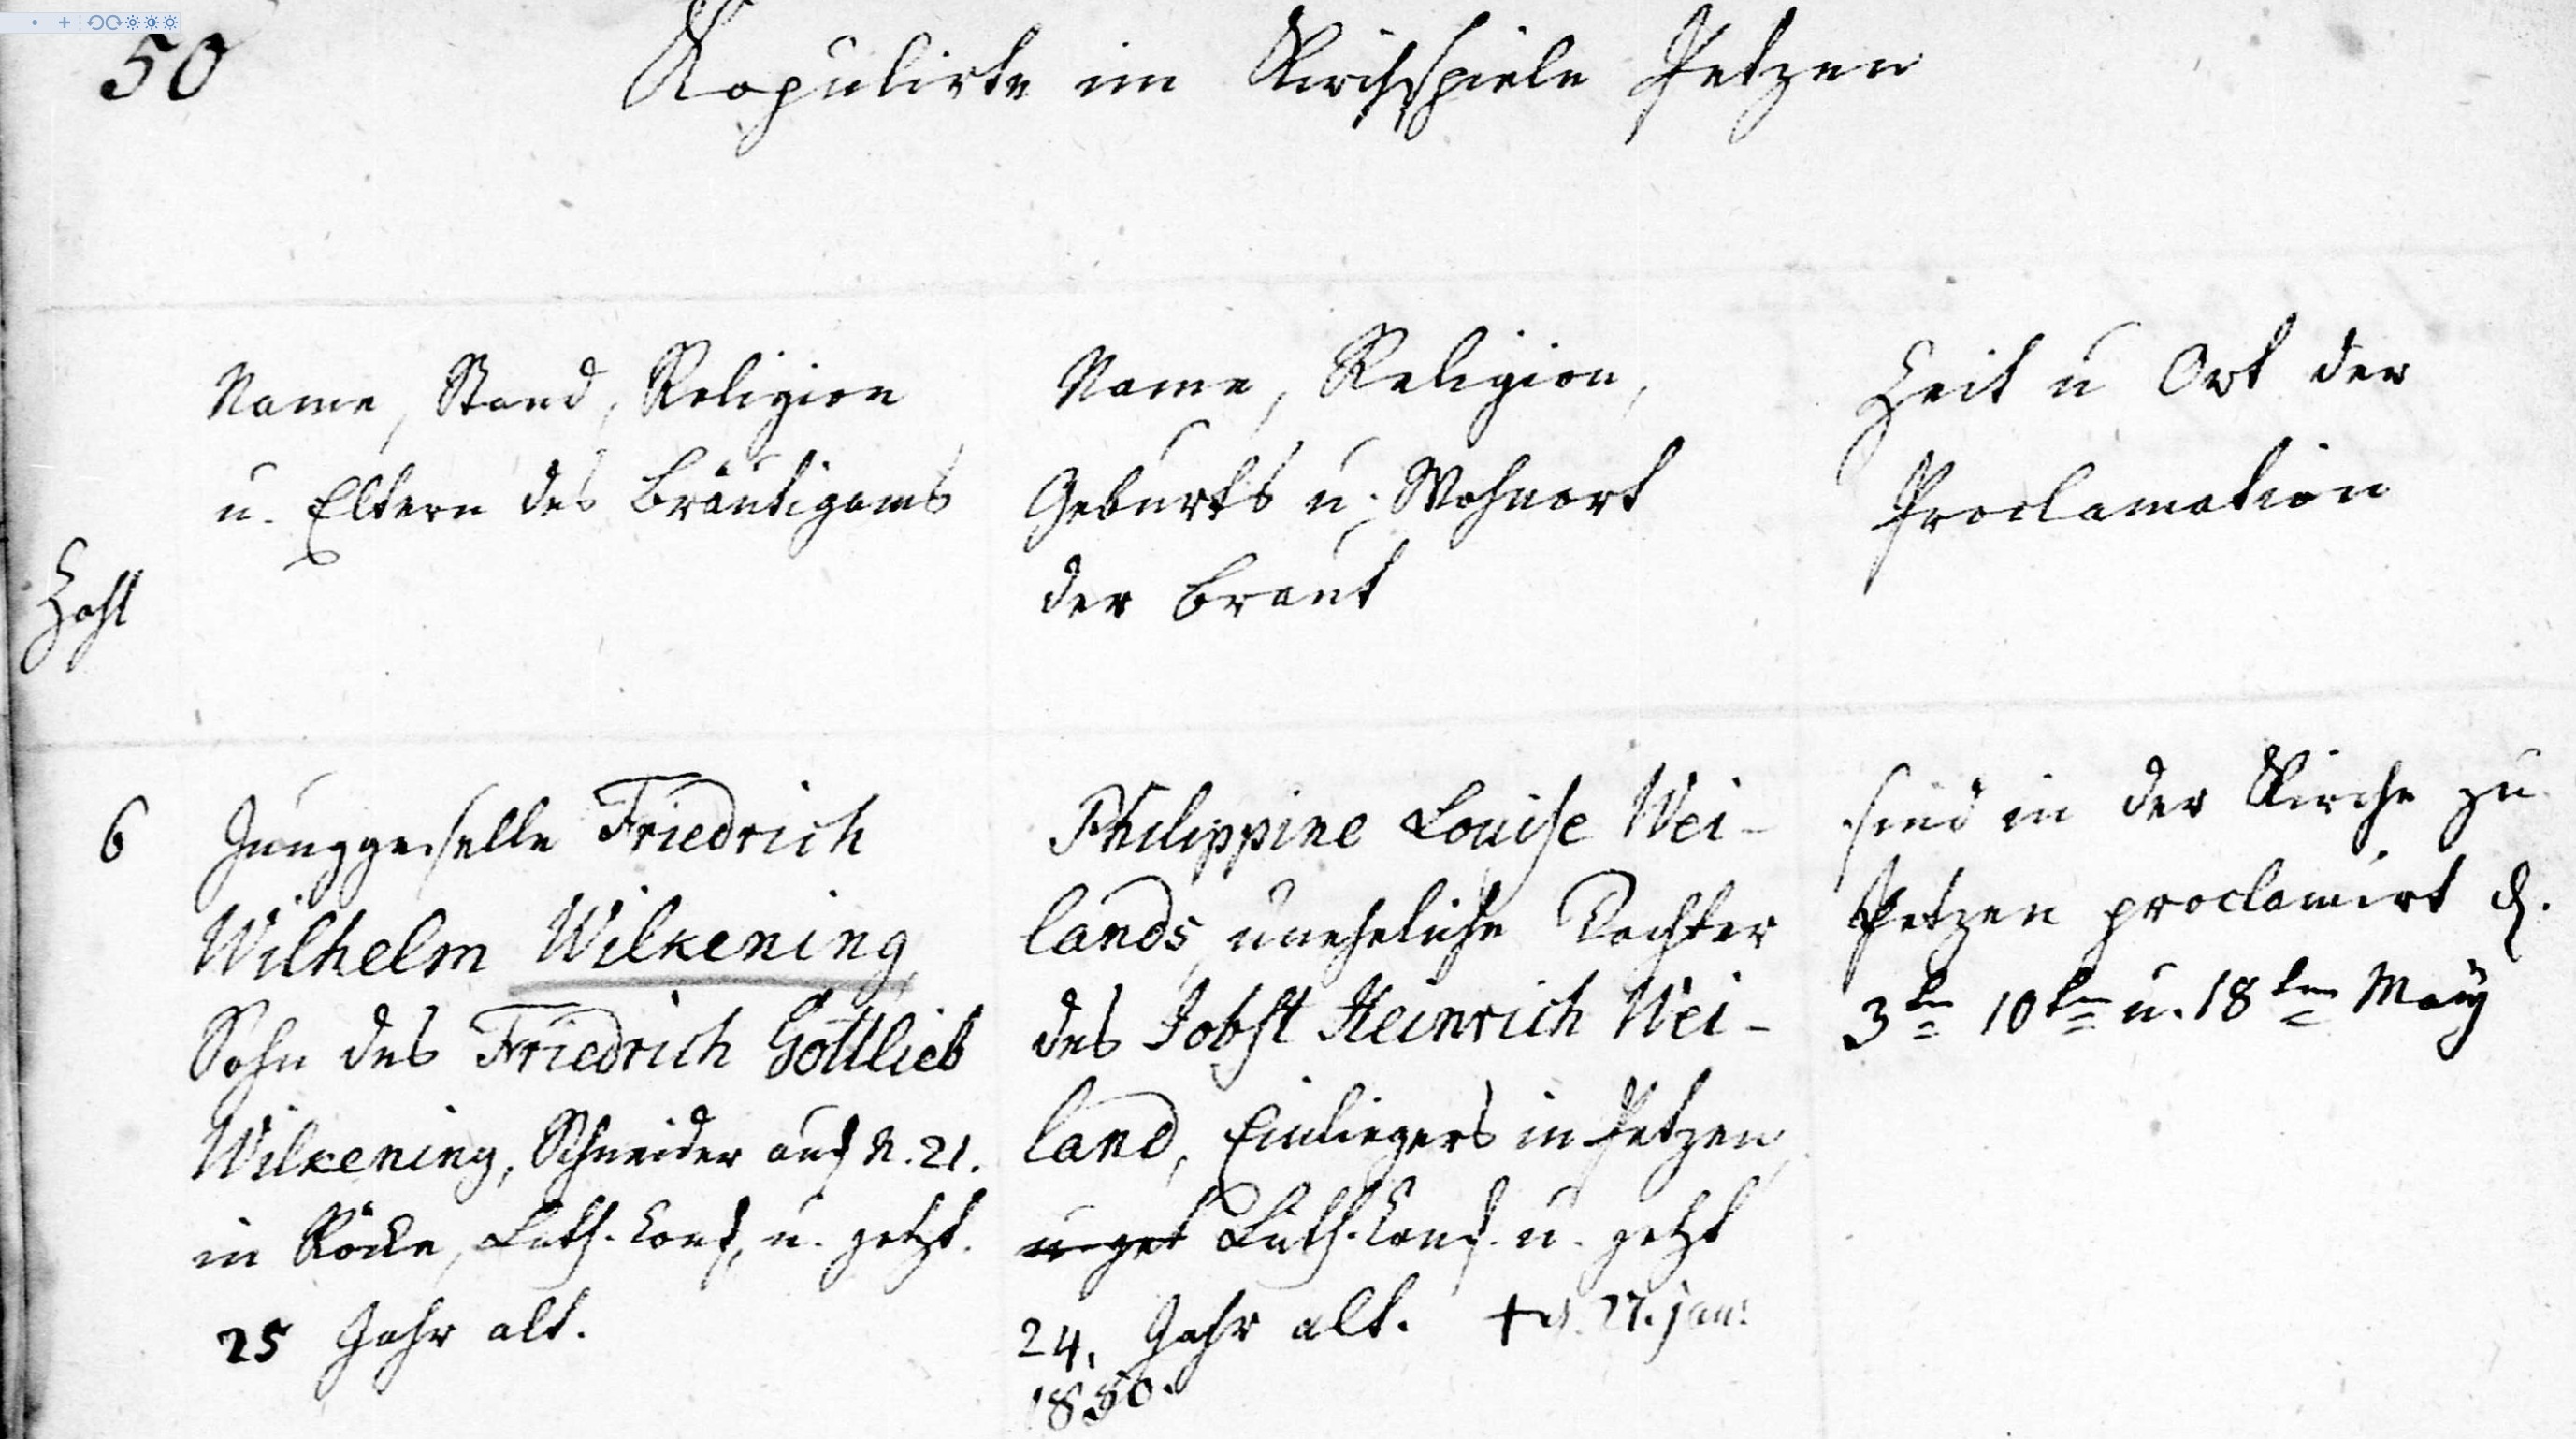 50
Kopulirte im Kirchspiele Petzen
Name, Stand, Religion
u. Eltern des Bräutigams
Name, Religion,
Geburts u. Wohnort
der Braut
Zeit u Ort der
Proclamation
Zahl
6
Junggeselle Friedrich
Wilhelm Wilkening,
Sohn des Friedrich Gottlieb
Wilkening, Schneider auf N. 21.
in Röcke, Luth. Conf, u. jetzt.
25 Jahr alt.
Philippine Louise Wei-
lands, uneheliche Tochter
des Jobst Heinrich Wei-
land, Einliegers in Petzen,
Luth. Conf. u. jetzt
24. Jahr alt. + d. 27. jan:
1850.
sind in der Kirche zu
Petzen proclamirt d.
3ten 10ten u. 18ten May